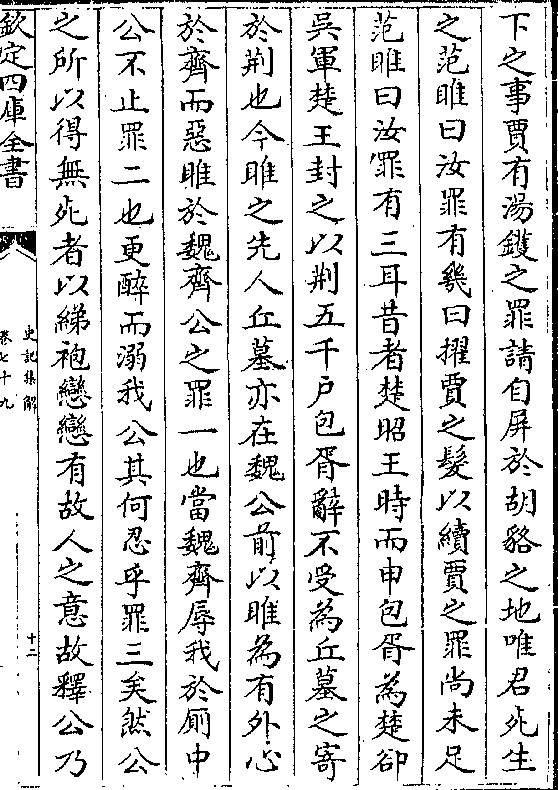 下之事賈有湯鑊之罪請自屏於胡貉之地唯君死生
之范睢曰汝罪有幾曰擢賈之髮以續賈之罪尚未足
范睢曰汝罪有三耳昔者楚昭王時而申包胥為楚卻
吳軍楚王封之以荆五千户包胥辭不受為丘墓之寄
於荆也今睢之先人丘墓亦在魏公前以睢為有外心
於齊而惡睢於魏齊公之罪一也當魏齊辱我於厠中
公不止罪二也更醉而溺我公其何忍乎罪三矣然公
之所以得無死者以綈袍戀戀有故人之意故釋公乃
欽定四庫全書
史記集解
卷七十九
十二